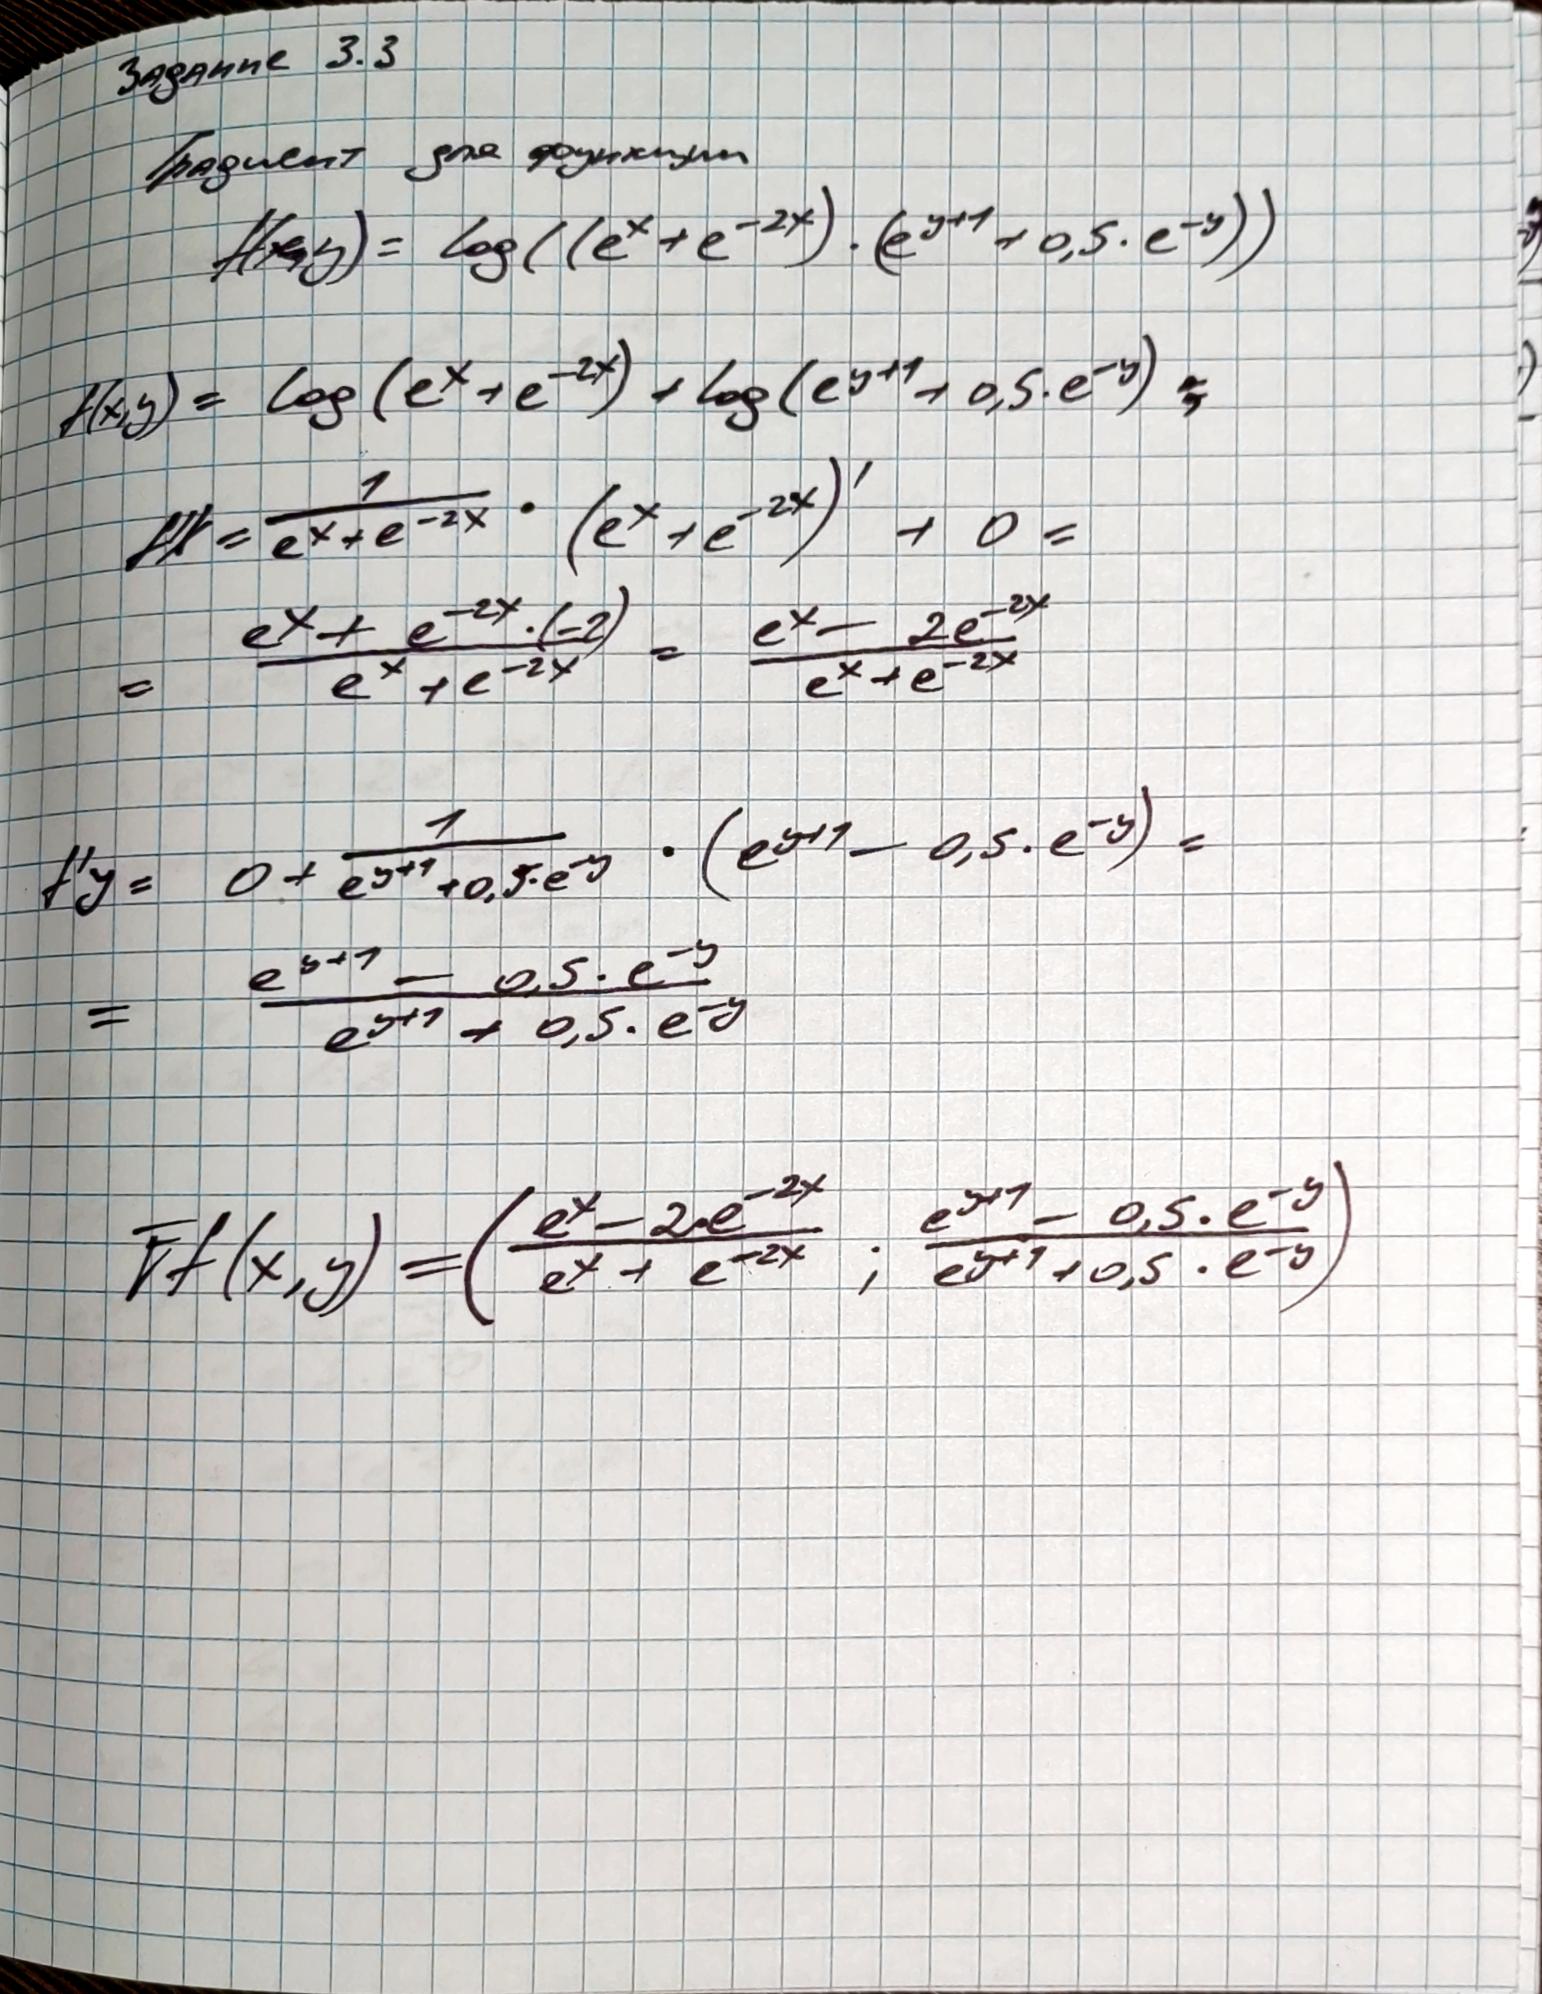 Задание 3.3
Градиент для функции
f(x,y) = log((e^x + e^{-2x}) · (e^{y+1} + 0,5 · e^{-y}))
f(x,y) = log(e^x + e^{-2x}) + log(e^{y+1} + 0,5 · e^{-y}) =
f'x = \frac{1}{e^x + e^{-2x}} · (e^x + e^{-2x})' + 0 =
= \frac{e^x + e^{-2x} · (-2)}{e^x + e^{-2x}} = \frac{e^x - 2e^{-2x}}{e^x + e^{-2x}}
f'y = 0 + \frac{1}{e^{y+1} + 0,5 · e^{-y}} · (e^{y+1} - 0,5 · e^{-y}) =
= \frac{e^{y+1} - 0,5 · e^{-y}}{e^{y+1} + 0,5 · e^{-y}}
∇f(x,y) = (\frac{e^x - 2 · e^{-2x}}{e^x + e^{-2x}} ; \frac{e^{y+1} - 0,5 · e^{-y}}{e^{y+1} + 0,5 · e^{-y}})